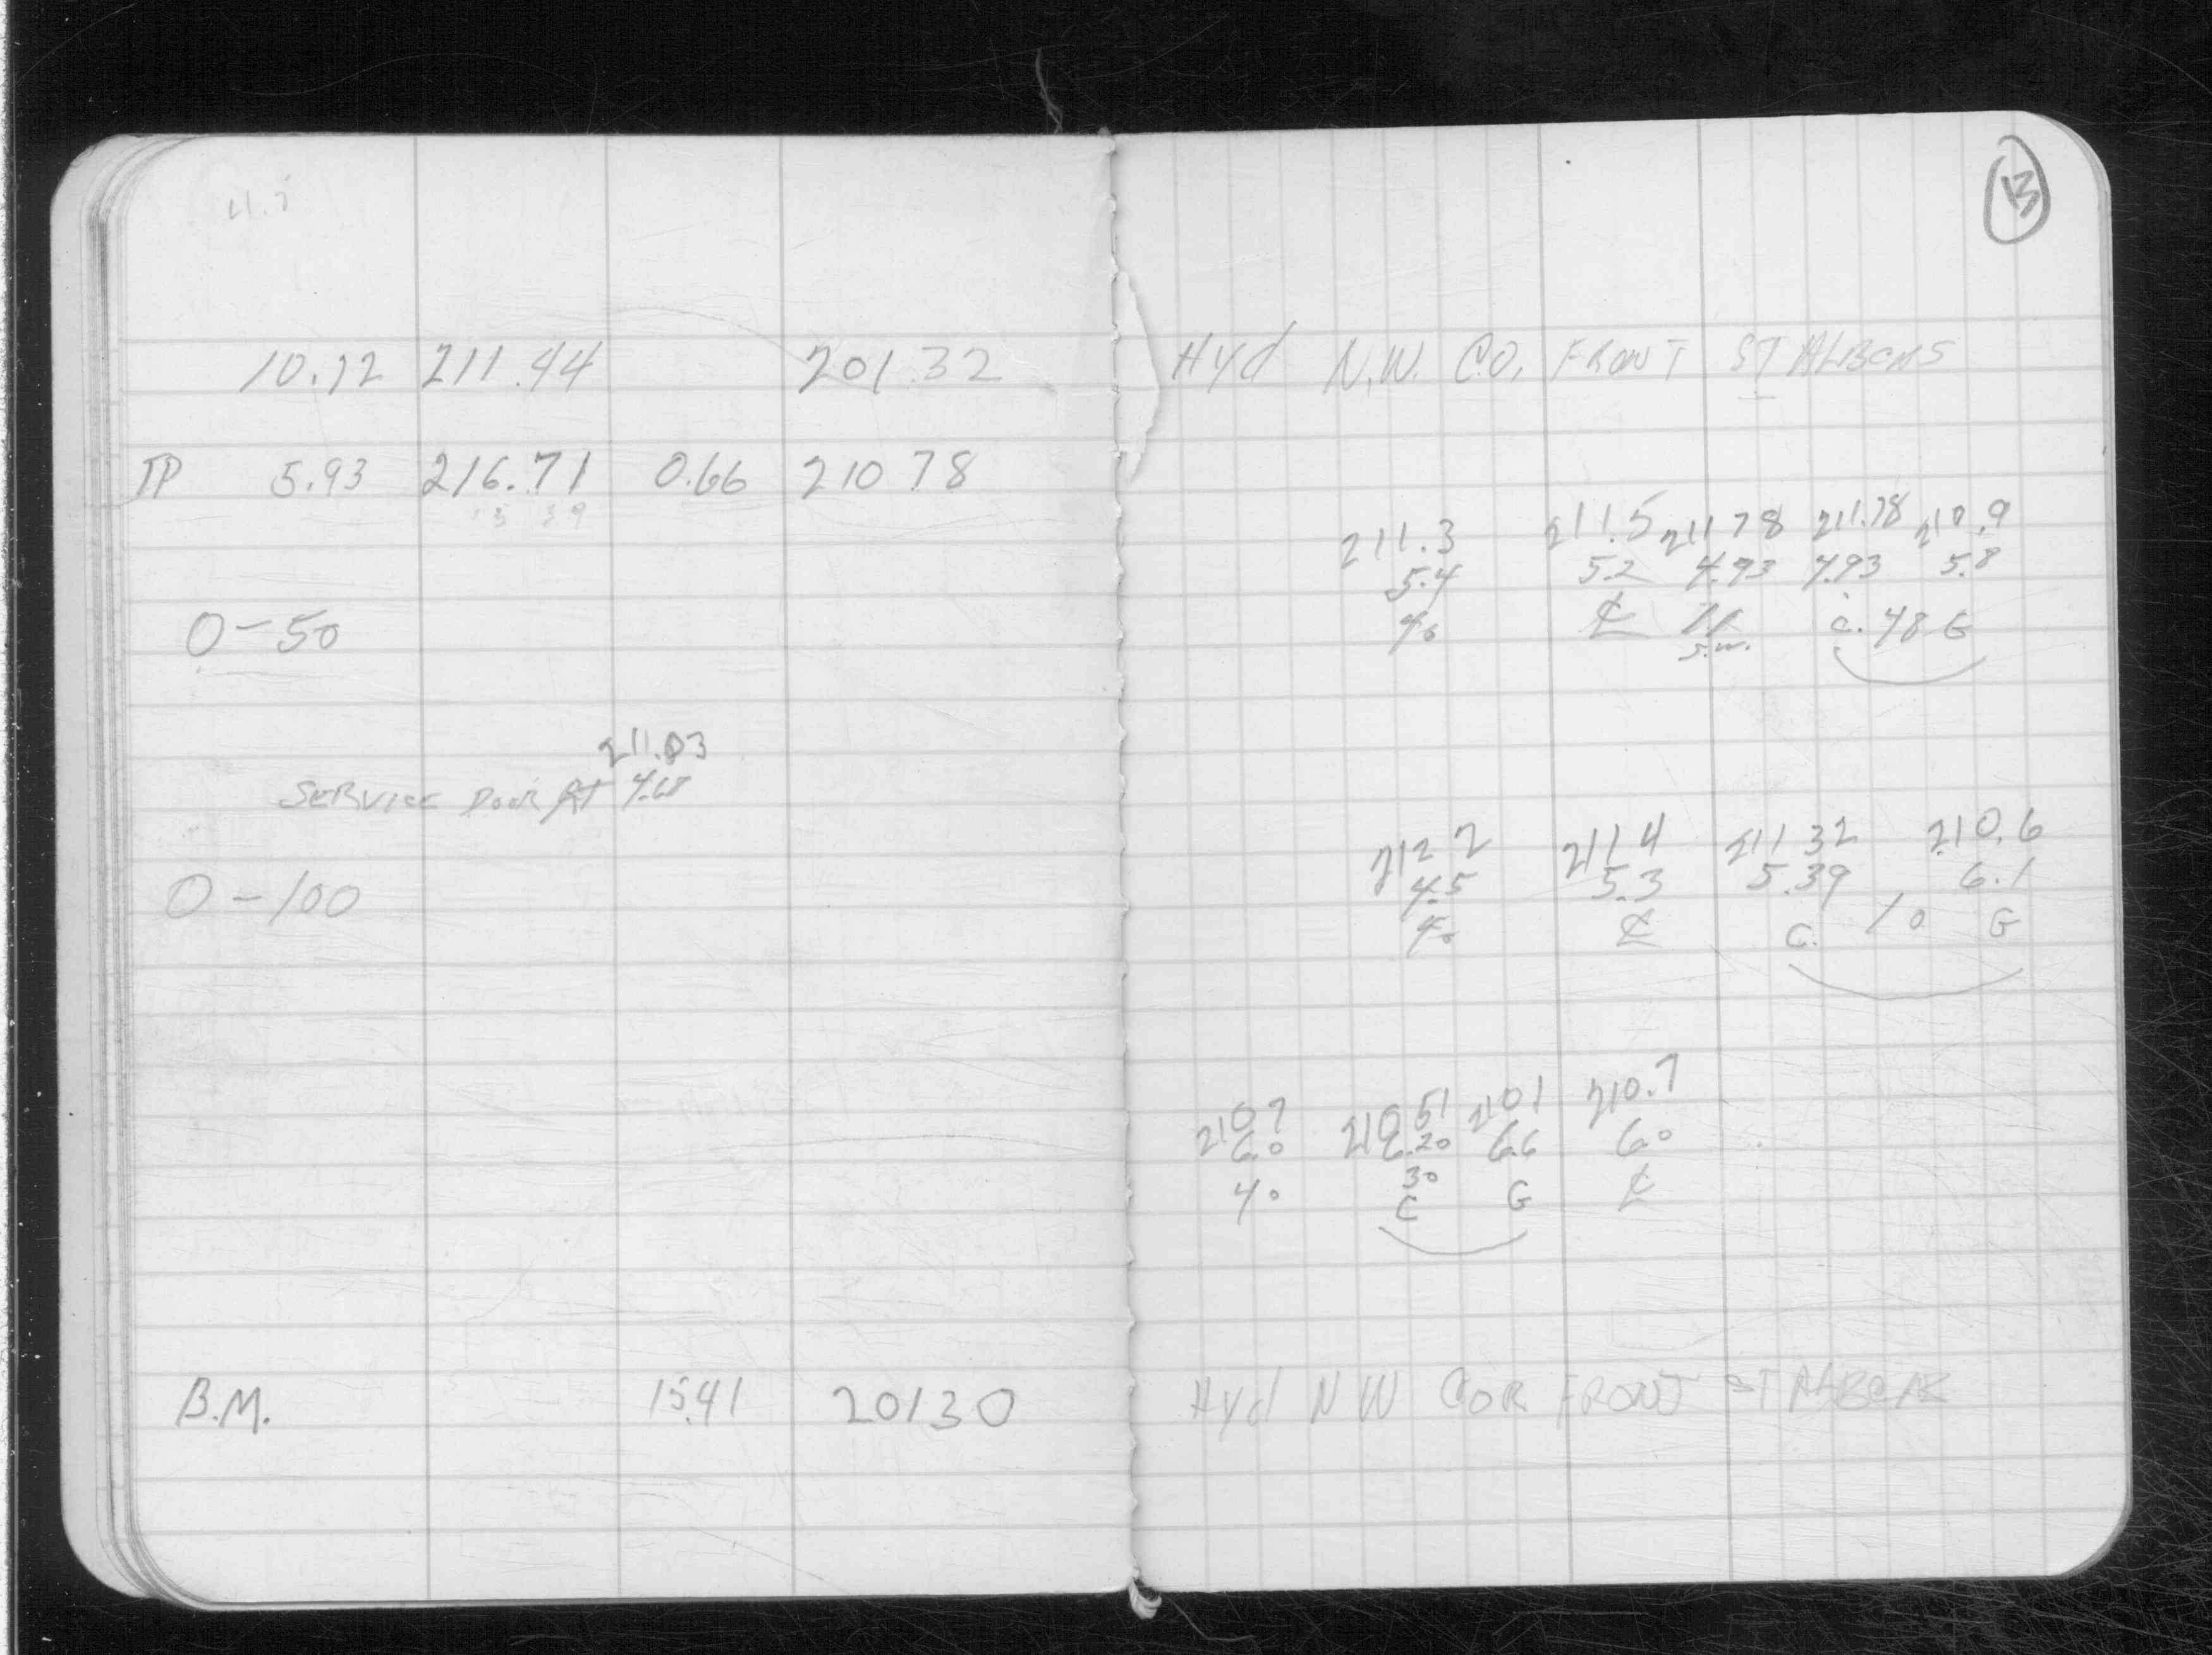 13
10.12 211.44 201.32 Hyd N.W. CO. FRONT ST ALBANS
TP 5.93 216.71 0.66 210 78
211.3 211.5 211 78 211.78 210.9
5.4 5.2 4.93 4.93 5.8
0-50 40 ℄ c. 48 G
S.W.
211.03
SERVICE DOOR AT 4.68
212 2 211 4 211 32 210.6
4.5 5.3 5.39 6.1
0-100 40 ℄ C. 10 G
210 7 210 51 210 1 210.7
6.0 6.20 6.6 6.0
40 30
C G ℄
B.M. 15.41 201 30 Hyd N W COR FRONT ST ALBANS